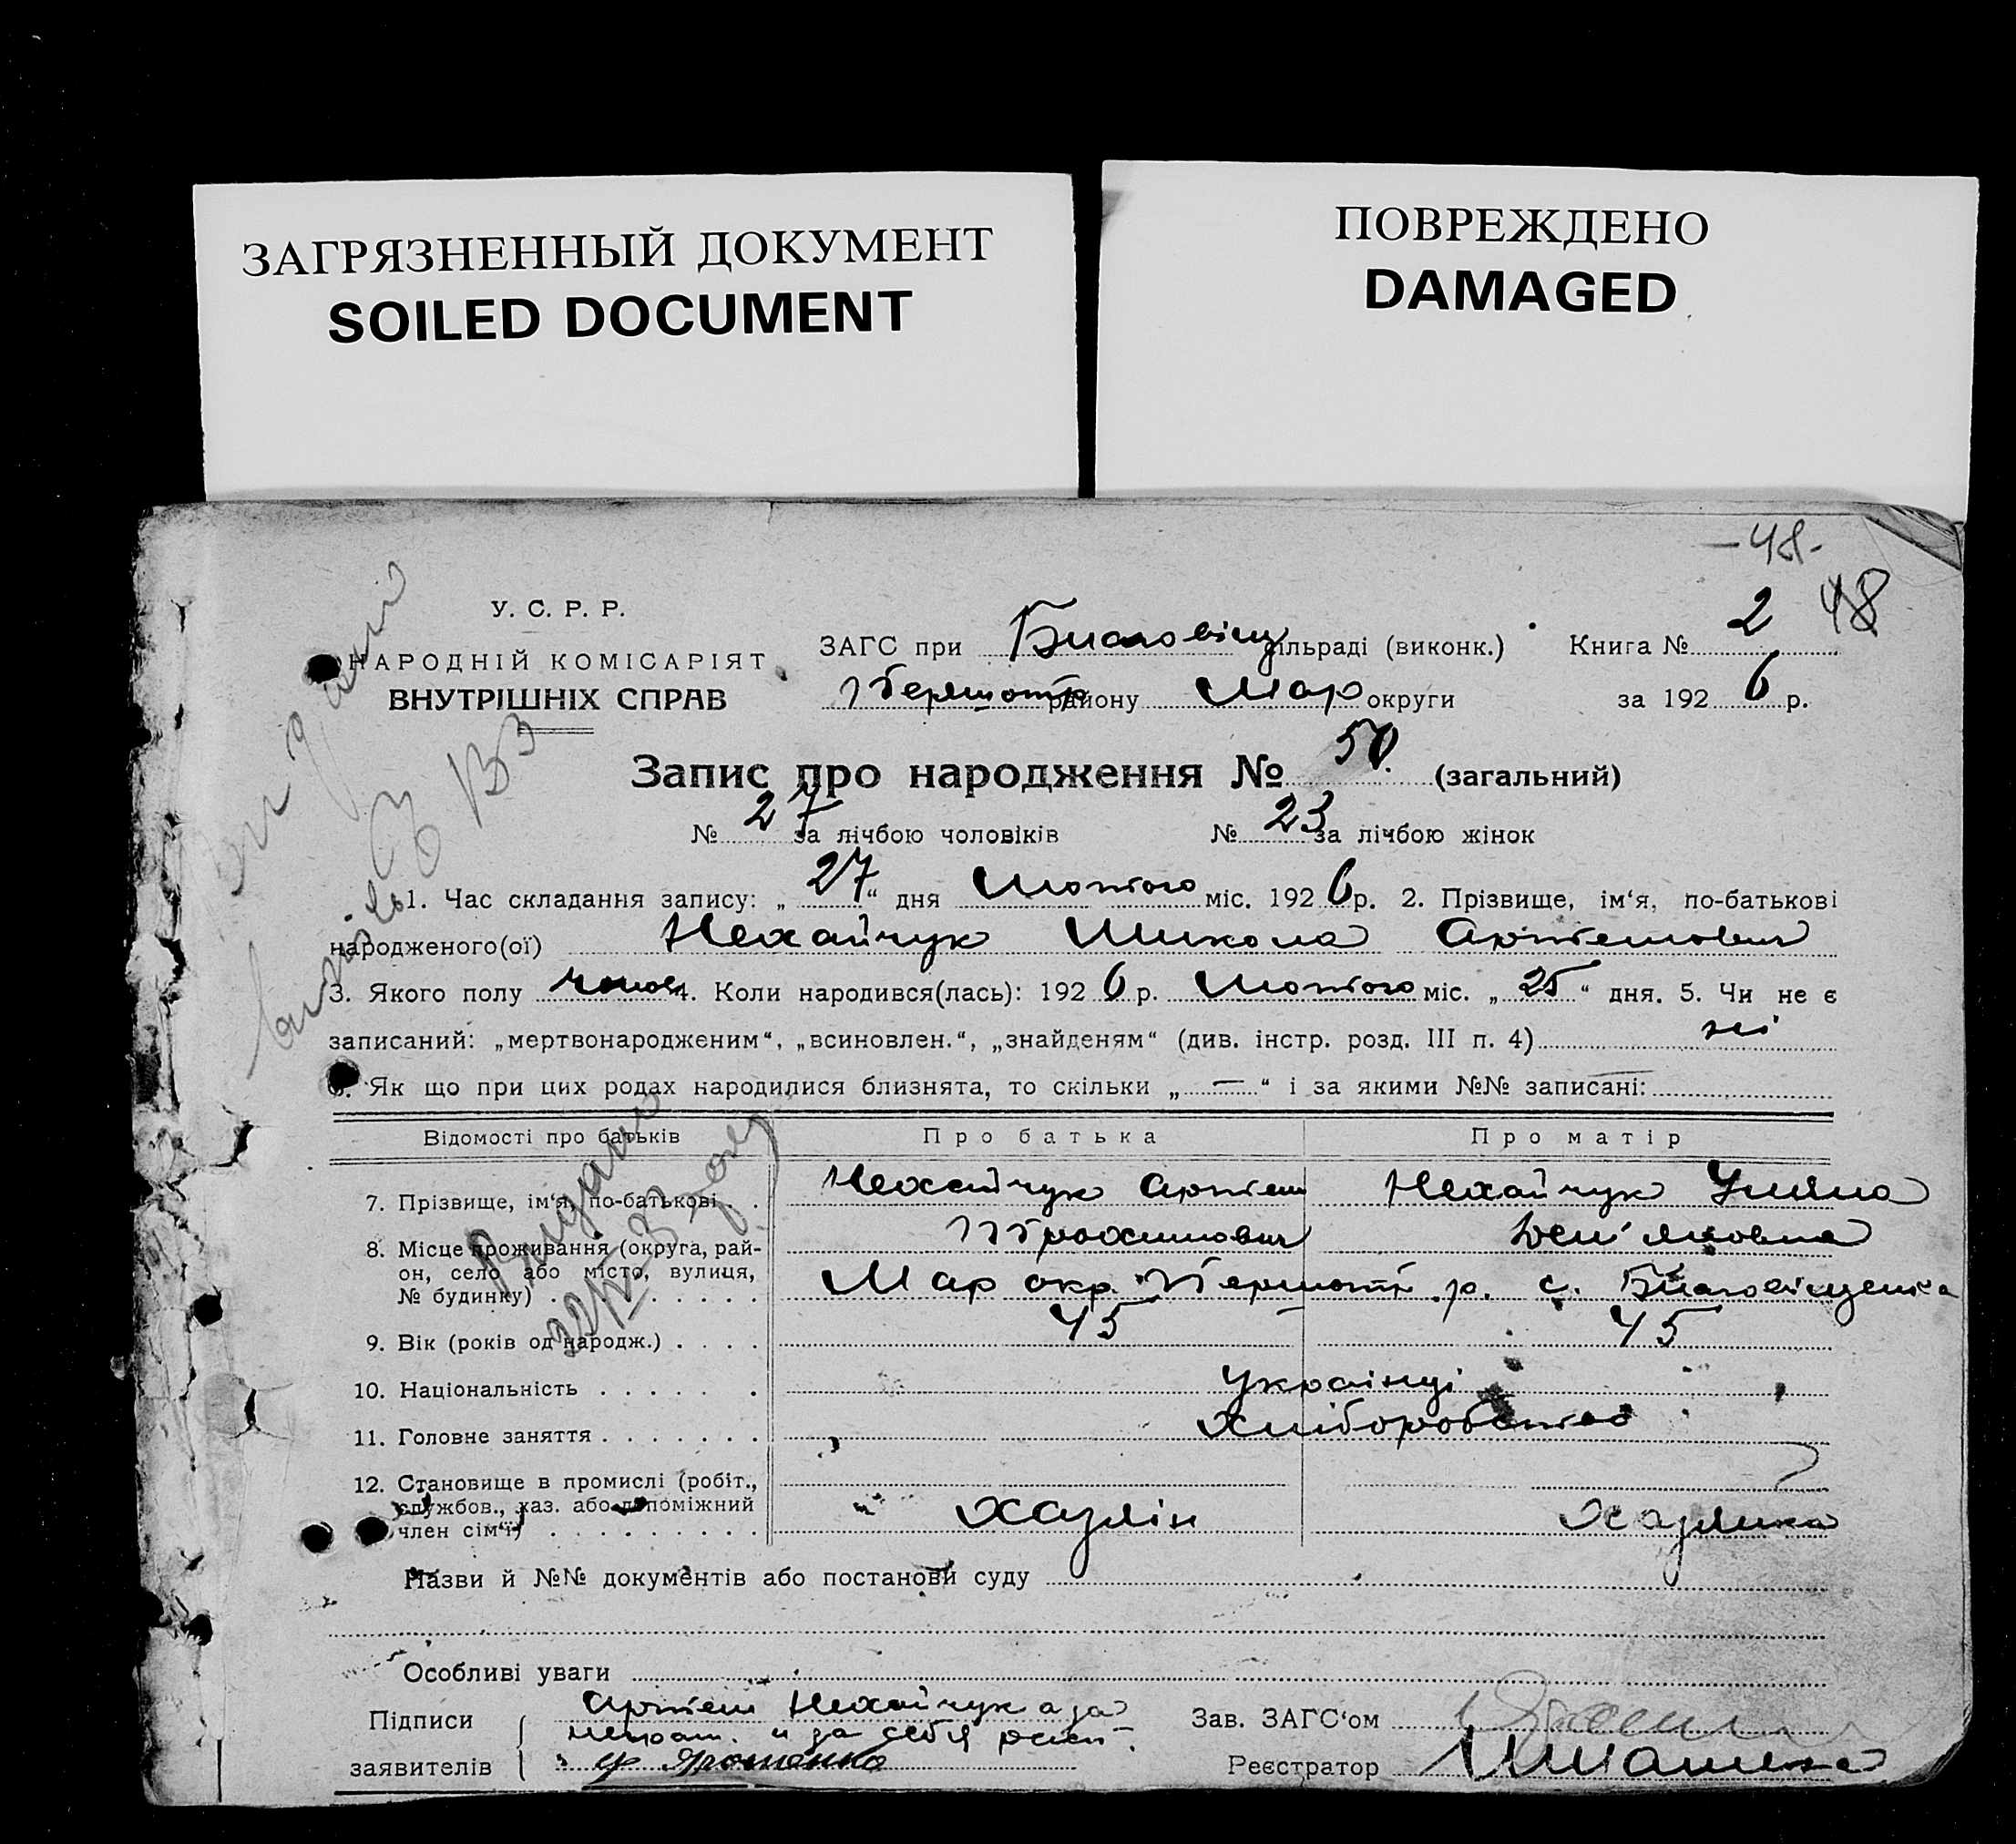 ЗАГРЯЗНЕННЫЙ ДОКУМЕНТ
SOILED DOCUMENT
ПОВРЕЖДЕНО
DAMAGED
-48-
48
У. С. Р. Р.
НАРОДНІЙ КОМІСАРІЯТ
ВНУТРІШНІХ СПРАВ
ЗАГС при Благовіщ сільраді (виконк.) Книга № 2
Першотр району Мар округи за 1926 р.
Запис про народження № 50. (загальний)
№ 27 за лічбою чоловіків № 23 за лічбою жінок
1. Час складання запису: „ 27 “ дня Лютого міс. 1926 р. 2. Прізвище, ім‘я, по-батькові
народженого(ої) Нехайчук Микола Артемович
3. Якого полу чолов 4. Коли народився(лась): 1926 р. Лютого міс. „ 25 “ дня. 5. Чи не є
записаний: „мертвонародженим“, „всиновлен.“, „знайденям“ (див. інстр. розд. III п. 4) ні
6. Як що при цих родах народилися близнята, то скільки „ — “ і за якими №№ записані:
Відомості про батьків Про батька Про матір
7. Прізвище, ім‘я, по-батькові . . Нехайчук Артем Нехайчук Уляна
Трохимович Дем'яновна
8. Місце проживання (округа, рай-
он, село або місто, вулиця,
№ будинку) . . . Мар окр. Першотр. р. с. Благовіщенка
9. Вік (років од народж.) . . . . 45 45
10. Національність . . . . . . Українці
11. Головне заняття . . . . . . . Хліборобство
12. Становище в промислі (робіт.,
службов., хаз. або допоміжний
член сім‘ї) . . . . . . . . . Хазяїн Хазяйка
Назви й №№ документів або постанови суду
Особливі уваги
Підписи Артем Нехайчук а за
заявителів неграм. и за себя росп. Ярошенко
Зав. ЗАГС‘ом
Реєстратор